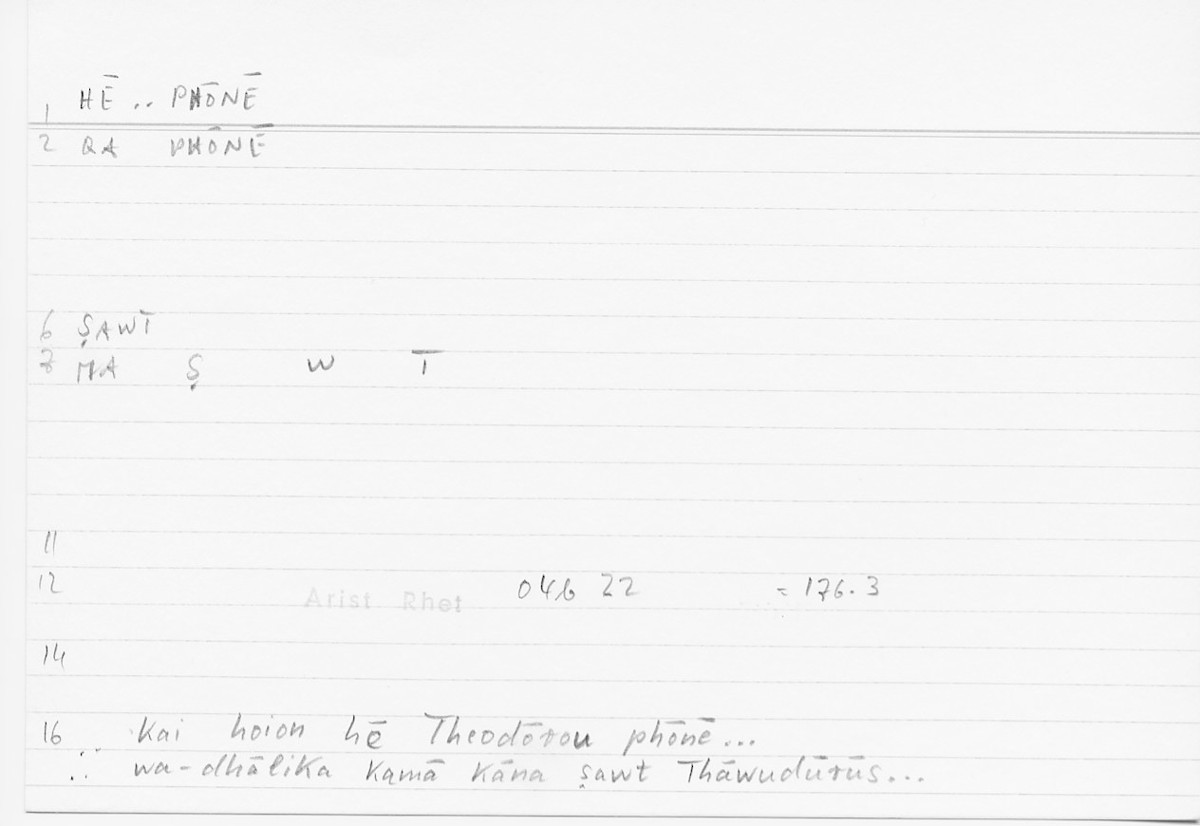 1 HĒ .. PHŌNĒ
2 QA PHŌNĒ
6 ṢAWT
7 MA Ṣ W T
11
12 Arist Rhet 04b 22 = 176.3
14
16 .. kai hoion hē Theodōrou phōnē...
∴ wa-dhālika kamā kāna ṣawt Thāwudūrūs...